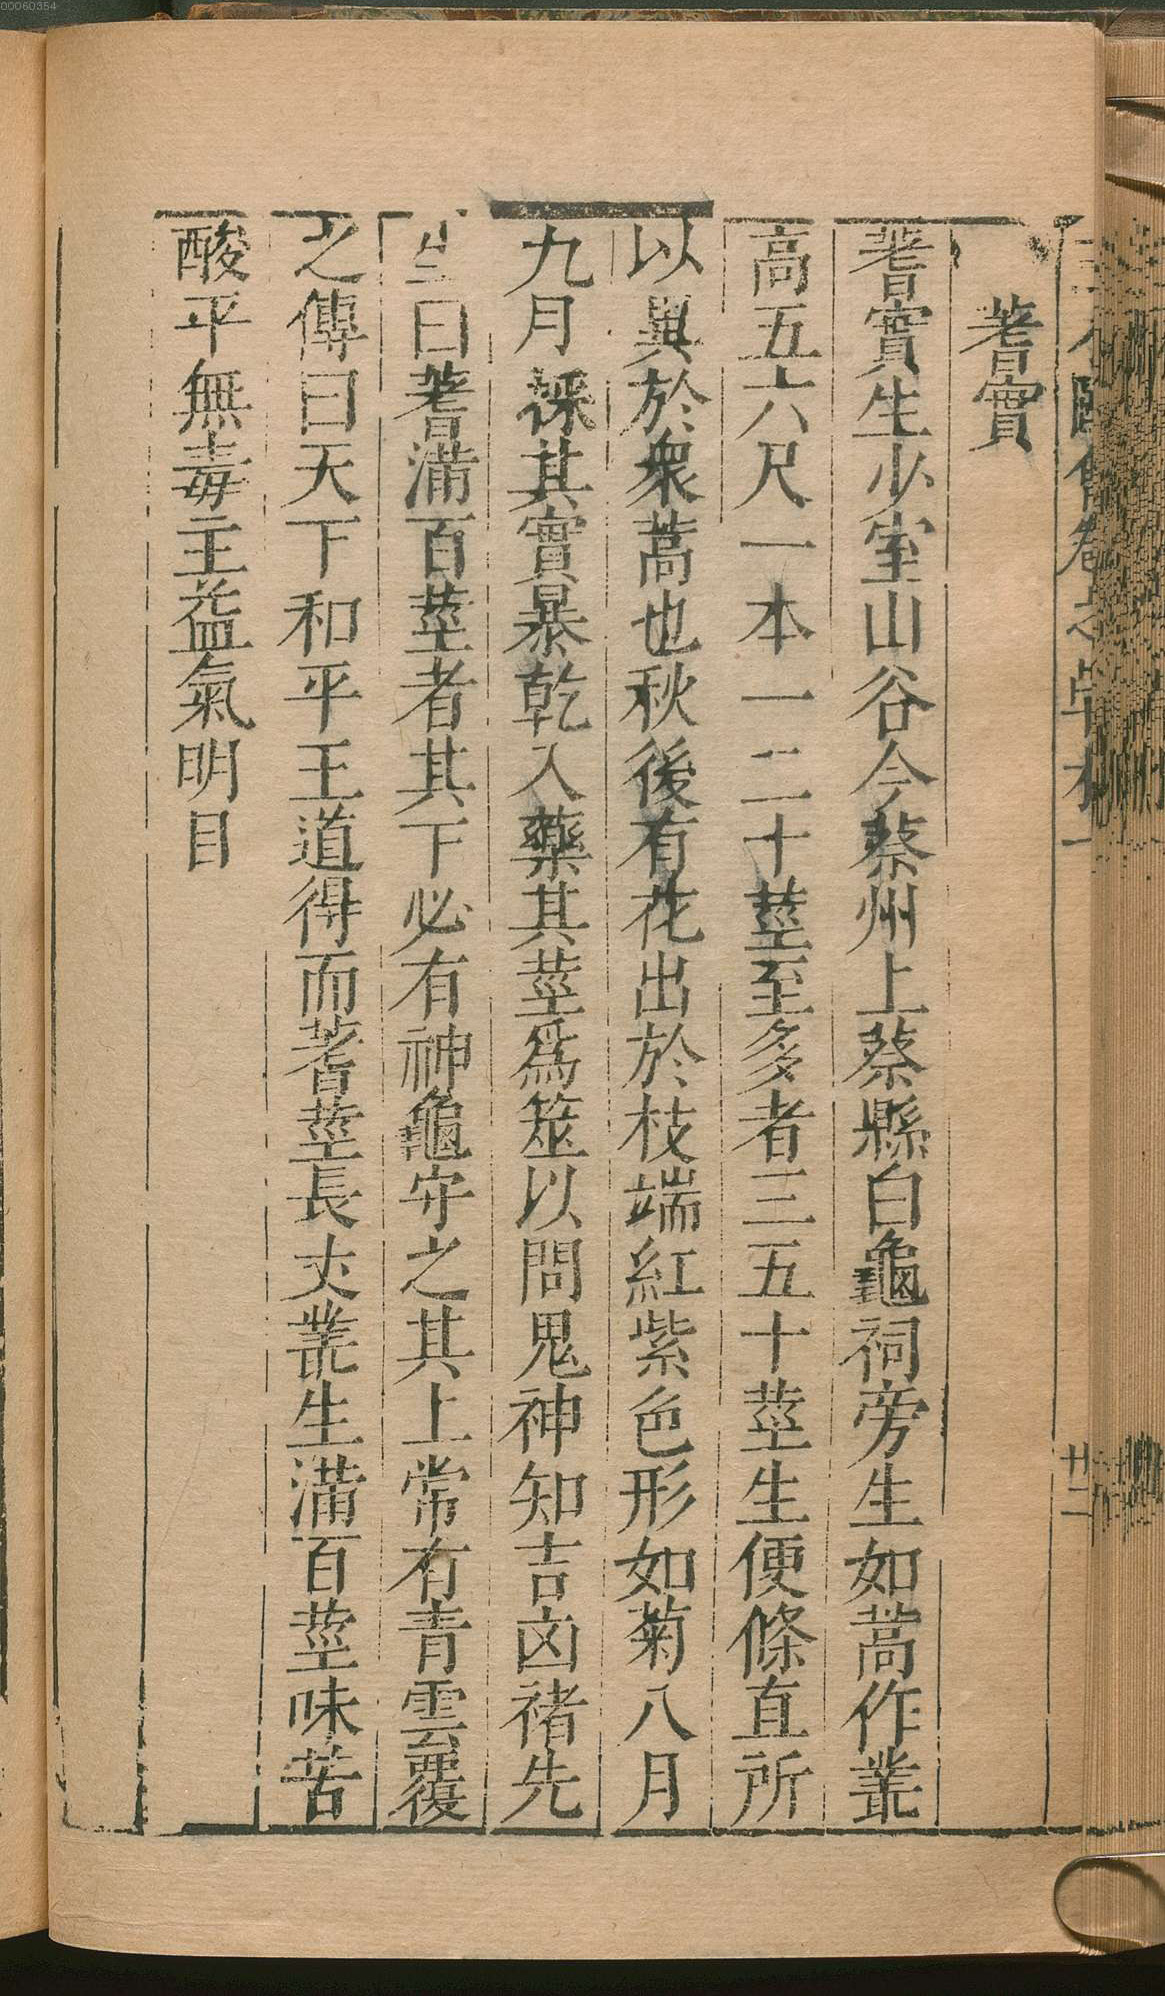 蓍實
蓍實生少室山谷今蔡州上蔡縣白龜祠旁生如蒿作叢
高五六尺一本一二十莖至多者三五十莖生便條直所
以異於衆蒿也秋後有花出於枝端紅紫色形如菊八月
九月採其實暴乾入藥其莖爲筮以問鬼神知吉凶褚先
生曰蓍滿百莖者其下必有神龜守之其上常有青雲覆
之傳曰天下和平王道得而蓍莖長丈叢生滿百莖味苦
酸平無毒主益氣明目
廿二
00060354